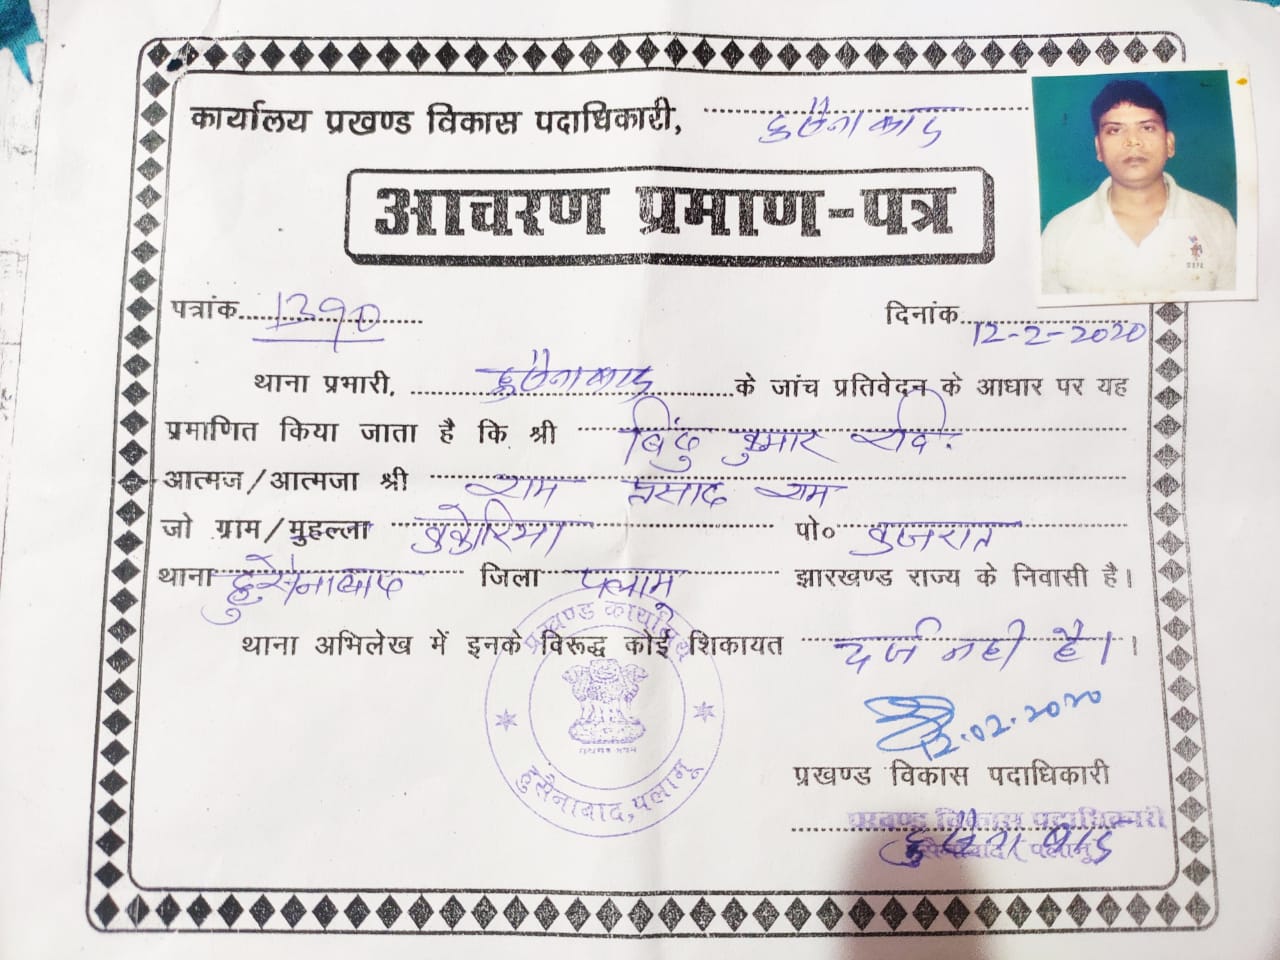 कार्यालय प्रखण्ड विकास पदाधिकारी, हुसैनाबाद
आचरण प्रमाण-पत्र
पत्रांक 1390 दिनांक 12-2-2020
थाना प्रभारी, हुसैनाबाद के जांच प्रतिवेदन के आधार पर यह
प्रमाणित किया जाता है कि श्री बिंदु कुमार रवि
आत्मज/आत्मजा श्री राम प्रसाद राम
जो ग्राम/मुहल्ला पो०
थाना हुसैनाबाद जिला पलामू झारखण्ड राज्य के निवासी है।
थाना अभिलेख में इनके विरूद्ध कोई शिकायत दर्ज नही है। ।
प्रखण्ड कार्यालय
हुसैनाबाद, पलामू
12.02.2020
प्रखण्ड विकास पदाधिकारी
प्रखण्ड विकास पदाधिकारी
हुसैनाबाद
हुसैनाबाद, पलामू